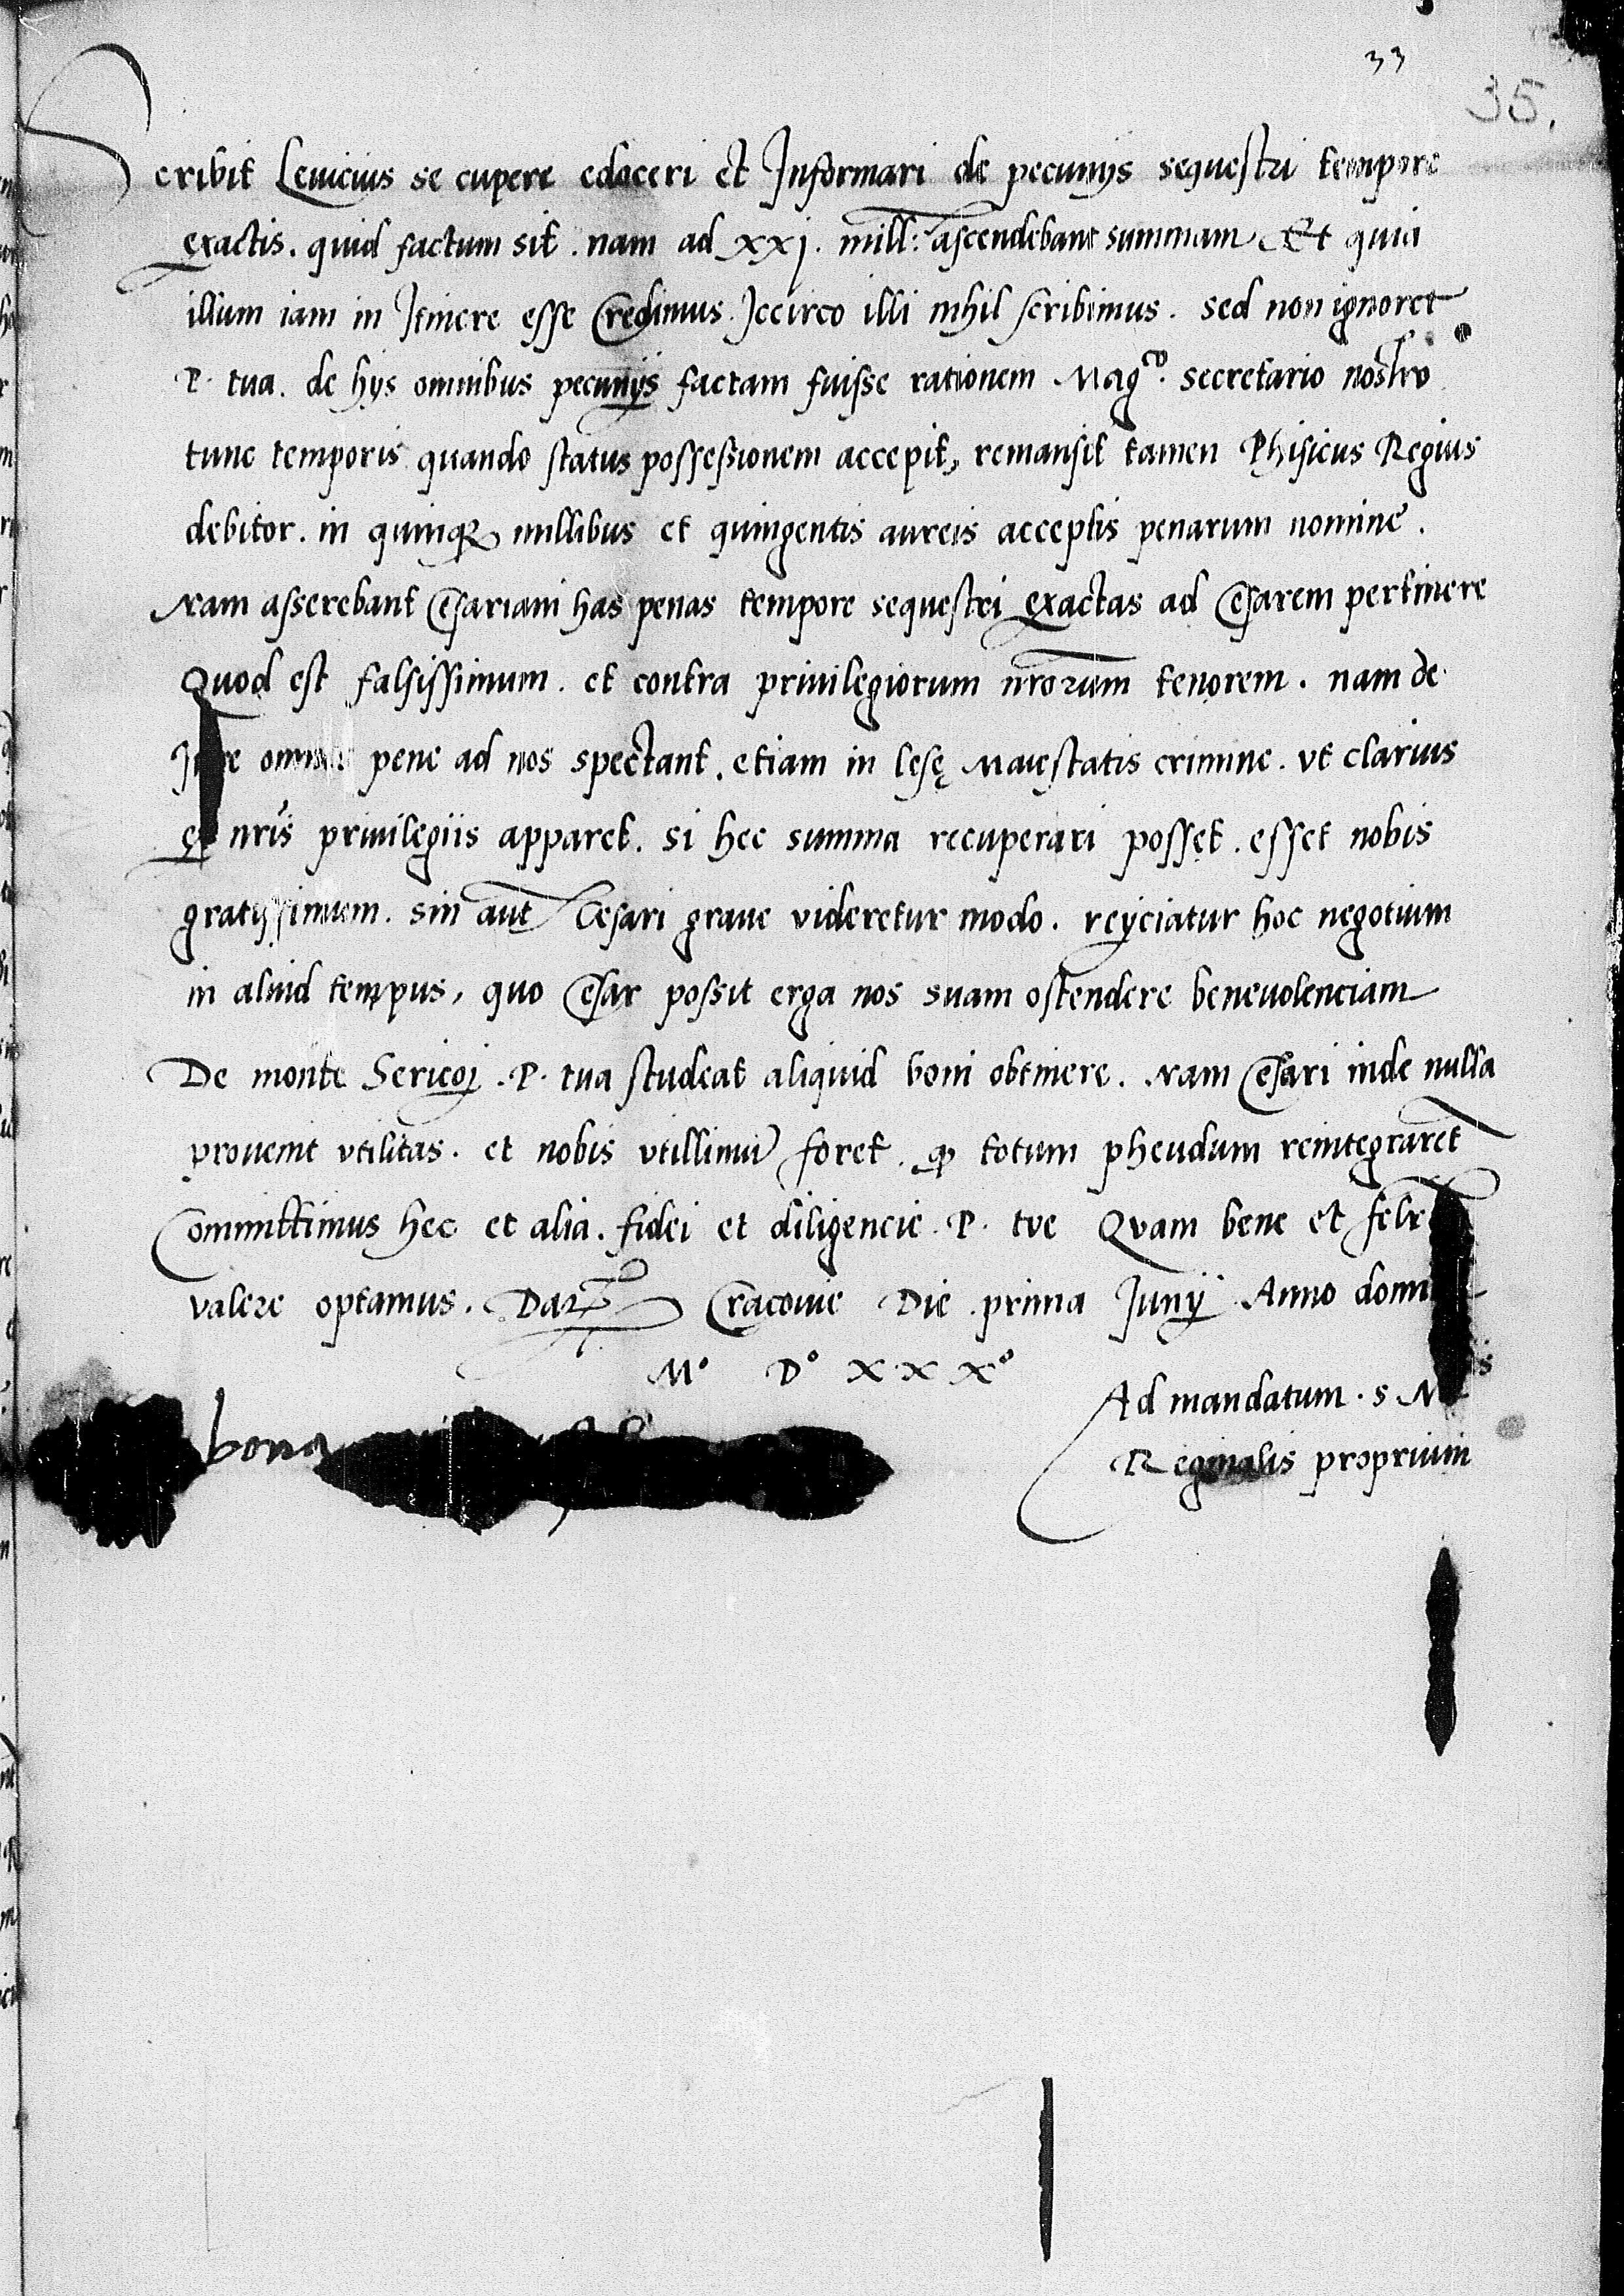 33
35.
Scribit Leuicius se cupere edoceri et Informari de pecunijs sequestri tempore
exactis. quid factum sit. nam ad xxj. mill: ascendebant summam Et quia
illum iam in Itinere esse Credimus. Iccirco illi nihil scribimus. sed non ignoret
P. tua. de hijs omnibus pecunijs factam fuisse rationem Mag.co secretario nostro
tunc temporis quando status possessionem accepit, remansit tamen Phisicus Regius
debitor. in quinq3 millibus et quingentis aureis acceptis penarum nomine.
Nam asserebant Cesariani has penas tempore sequestri exactas ad Cesarem pertinere
Quod est falsissimum. et contra priuilegiorum nrorum tenorem. nam de
Iure omnes pene ad nos spectant. etiam in lesę Maiestatis crimine. vt clarius
ex nris priuilegiis apparet. si hec summa recuperari posset. esset nobis
gratissimum. sin aut Cesari graue videretur modo. reijciatur hoc negotium
in aliud tempus, quo Cesar possit erga nos suam ostendere beneuolenciam
De monte Sericoj. P. tua studeat aliquid boni obtinere. Nam Cesari inde nulla
prouenit vtilitas. et nobis vtillimū foret. qp totum pheudum reintegraret
Committimus hec et alia. fidei et diligencie. P. tue Quam bene et
valere optamus. Dat Cracouie Die prima Junij Anno domi
M° D° XXX°
Ad mandatum. s M
Reginalis proprium
bona